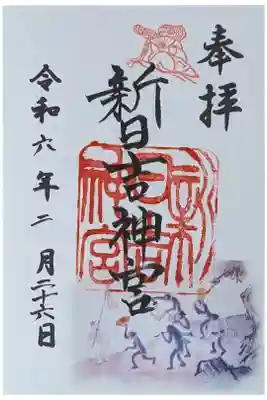 奉拝
新日吉神宮
令和六年二月二十六日